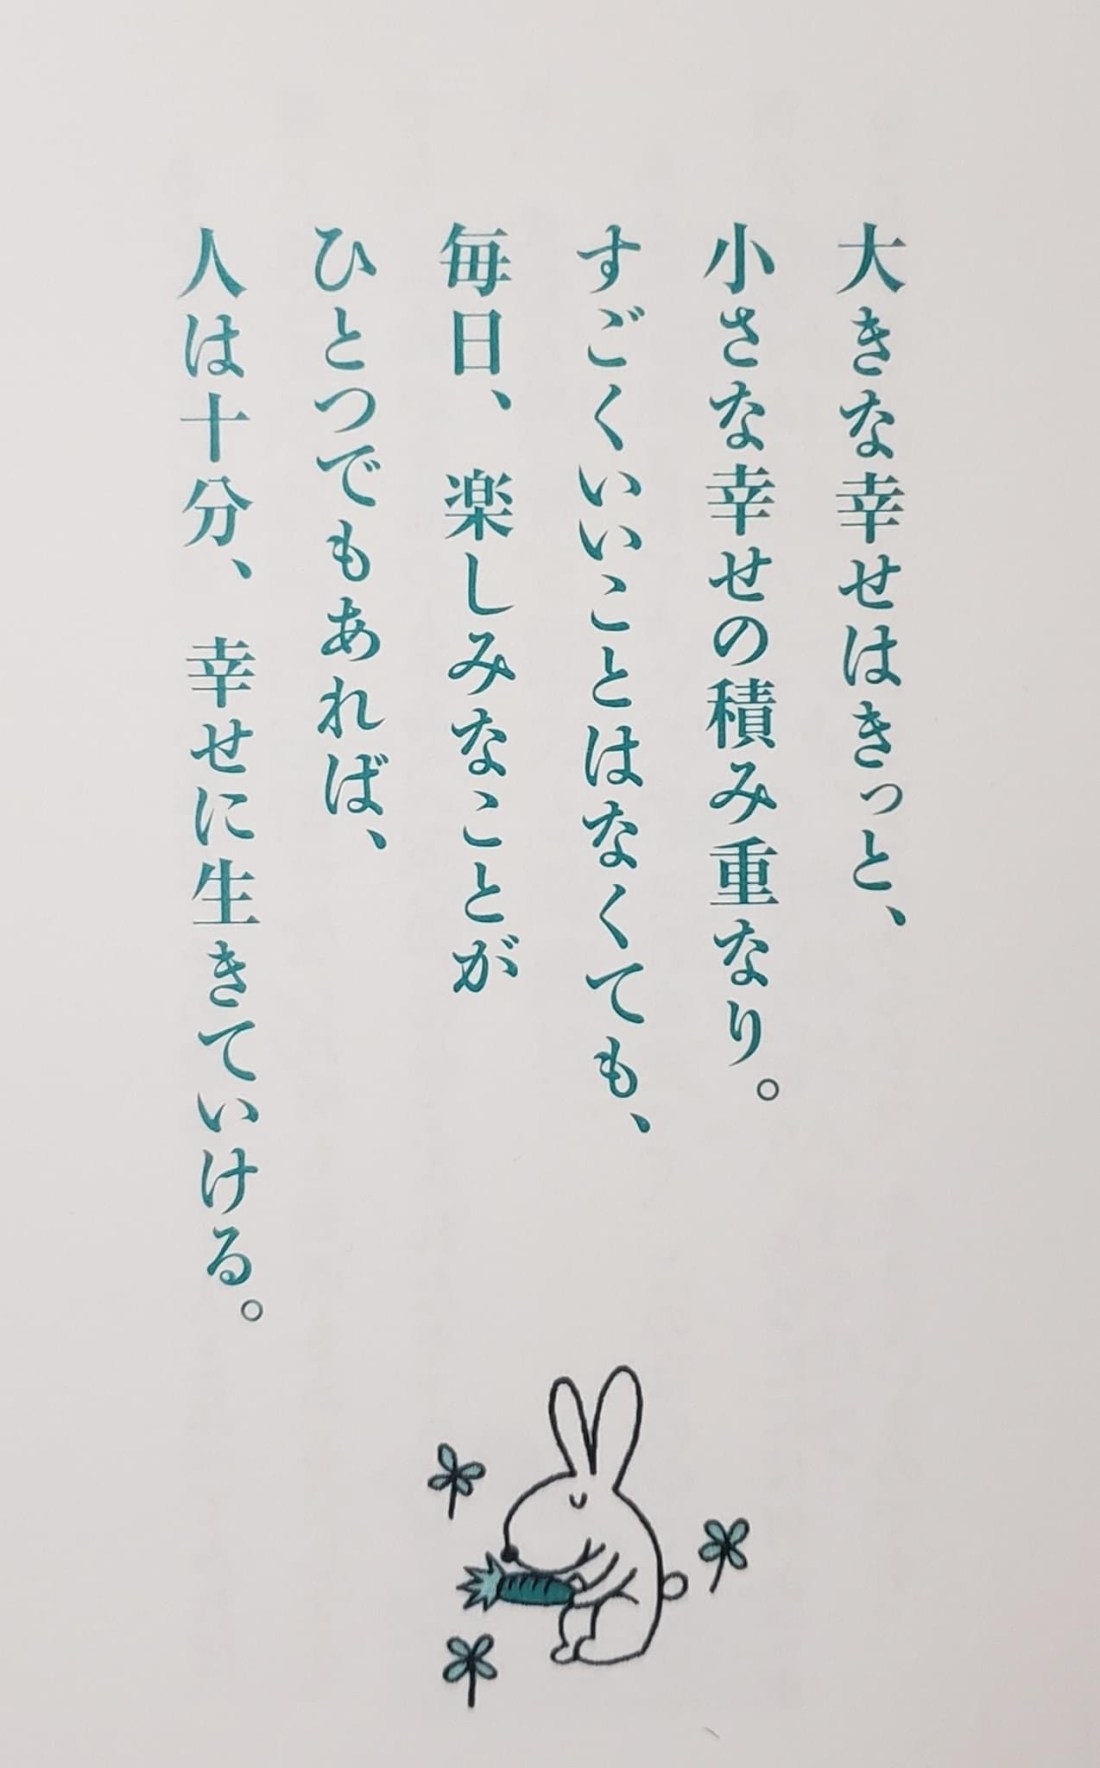 大きな幸せはきっと、
小さな幸せの積み重なり。
すごくいいことはなくても、
毎日、楽しみなことが
ひとつでもあれば、
人は十分、幸せに生きていける。